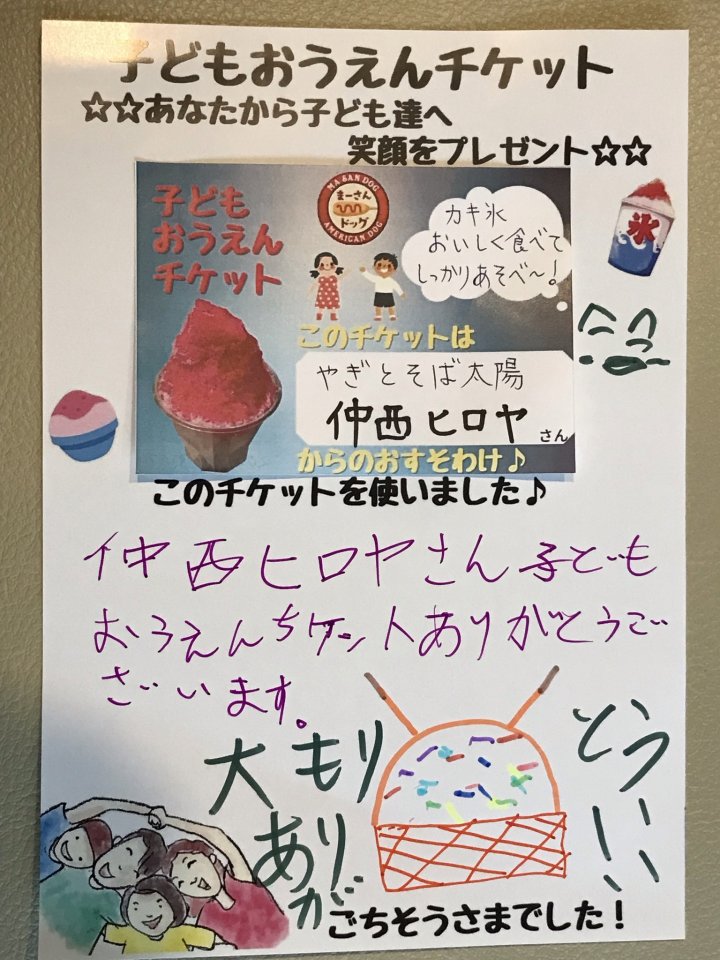 子どもおうえんチケット
☆☆あなたから子ども達へ
笑顔をプレゼント☆☆
子ども
おうえん
チケット
MA SAN DOG
まーさん
ドッグ
AMERICAN DOG
カキ氷
おいしく食べて
しっかりあそべ〜!
氷
このチケットは
やぎとそば太陽
仲西ヒロヤ
さん
からのおすそわけ♪
このチケットを使いました♪
仲西ヒロヤさん子ども
おうえんちケットありがとうご
ざいます。
大もり
ありが
とうー!!
ごちそうさまでした!